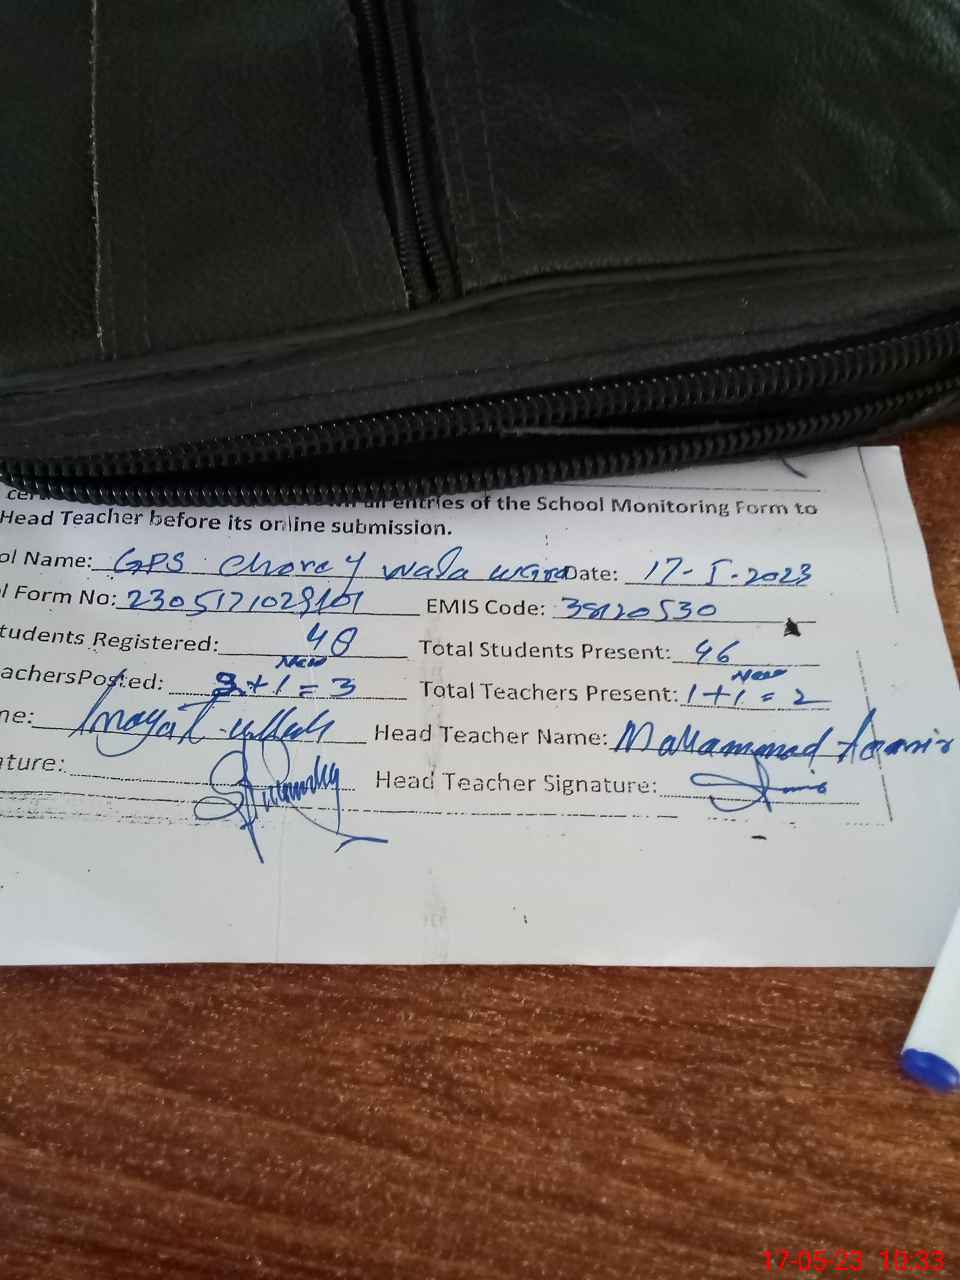 entries of the School Monitoring Form to
Head Teacher before its online submission.
ol Name: GPS Chorey wala Date: 17-5-2023
l Form No: EMIS Code:
tudents Registered: 48 Total Students Present: 46
New New
achersPosted: + 1 = 3 Total Teachers Present: 1+1=2
me: Inayat ullah Head Teacher Name: Mohammad Aamir
ature: Head Teacher Signature:
17-05-23 10:33